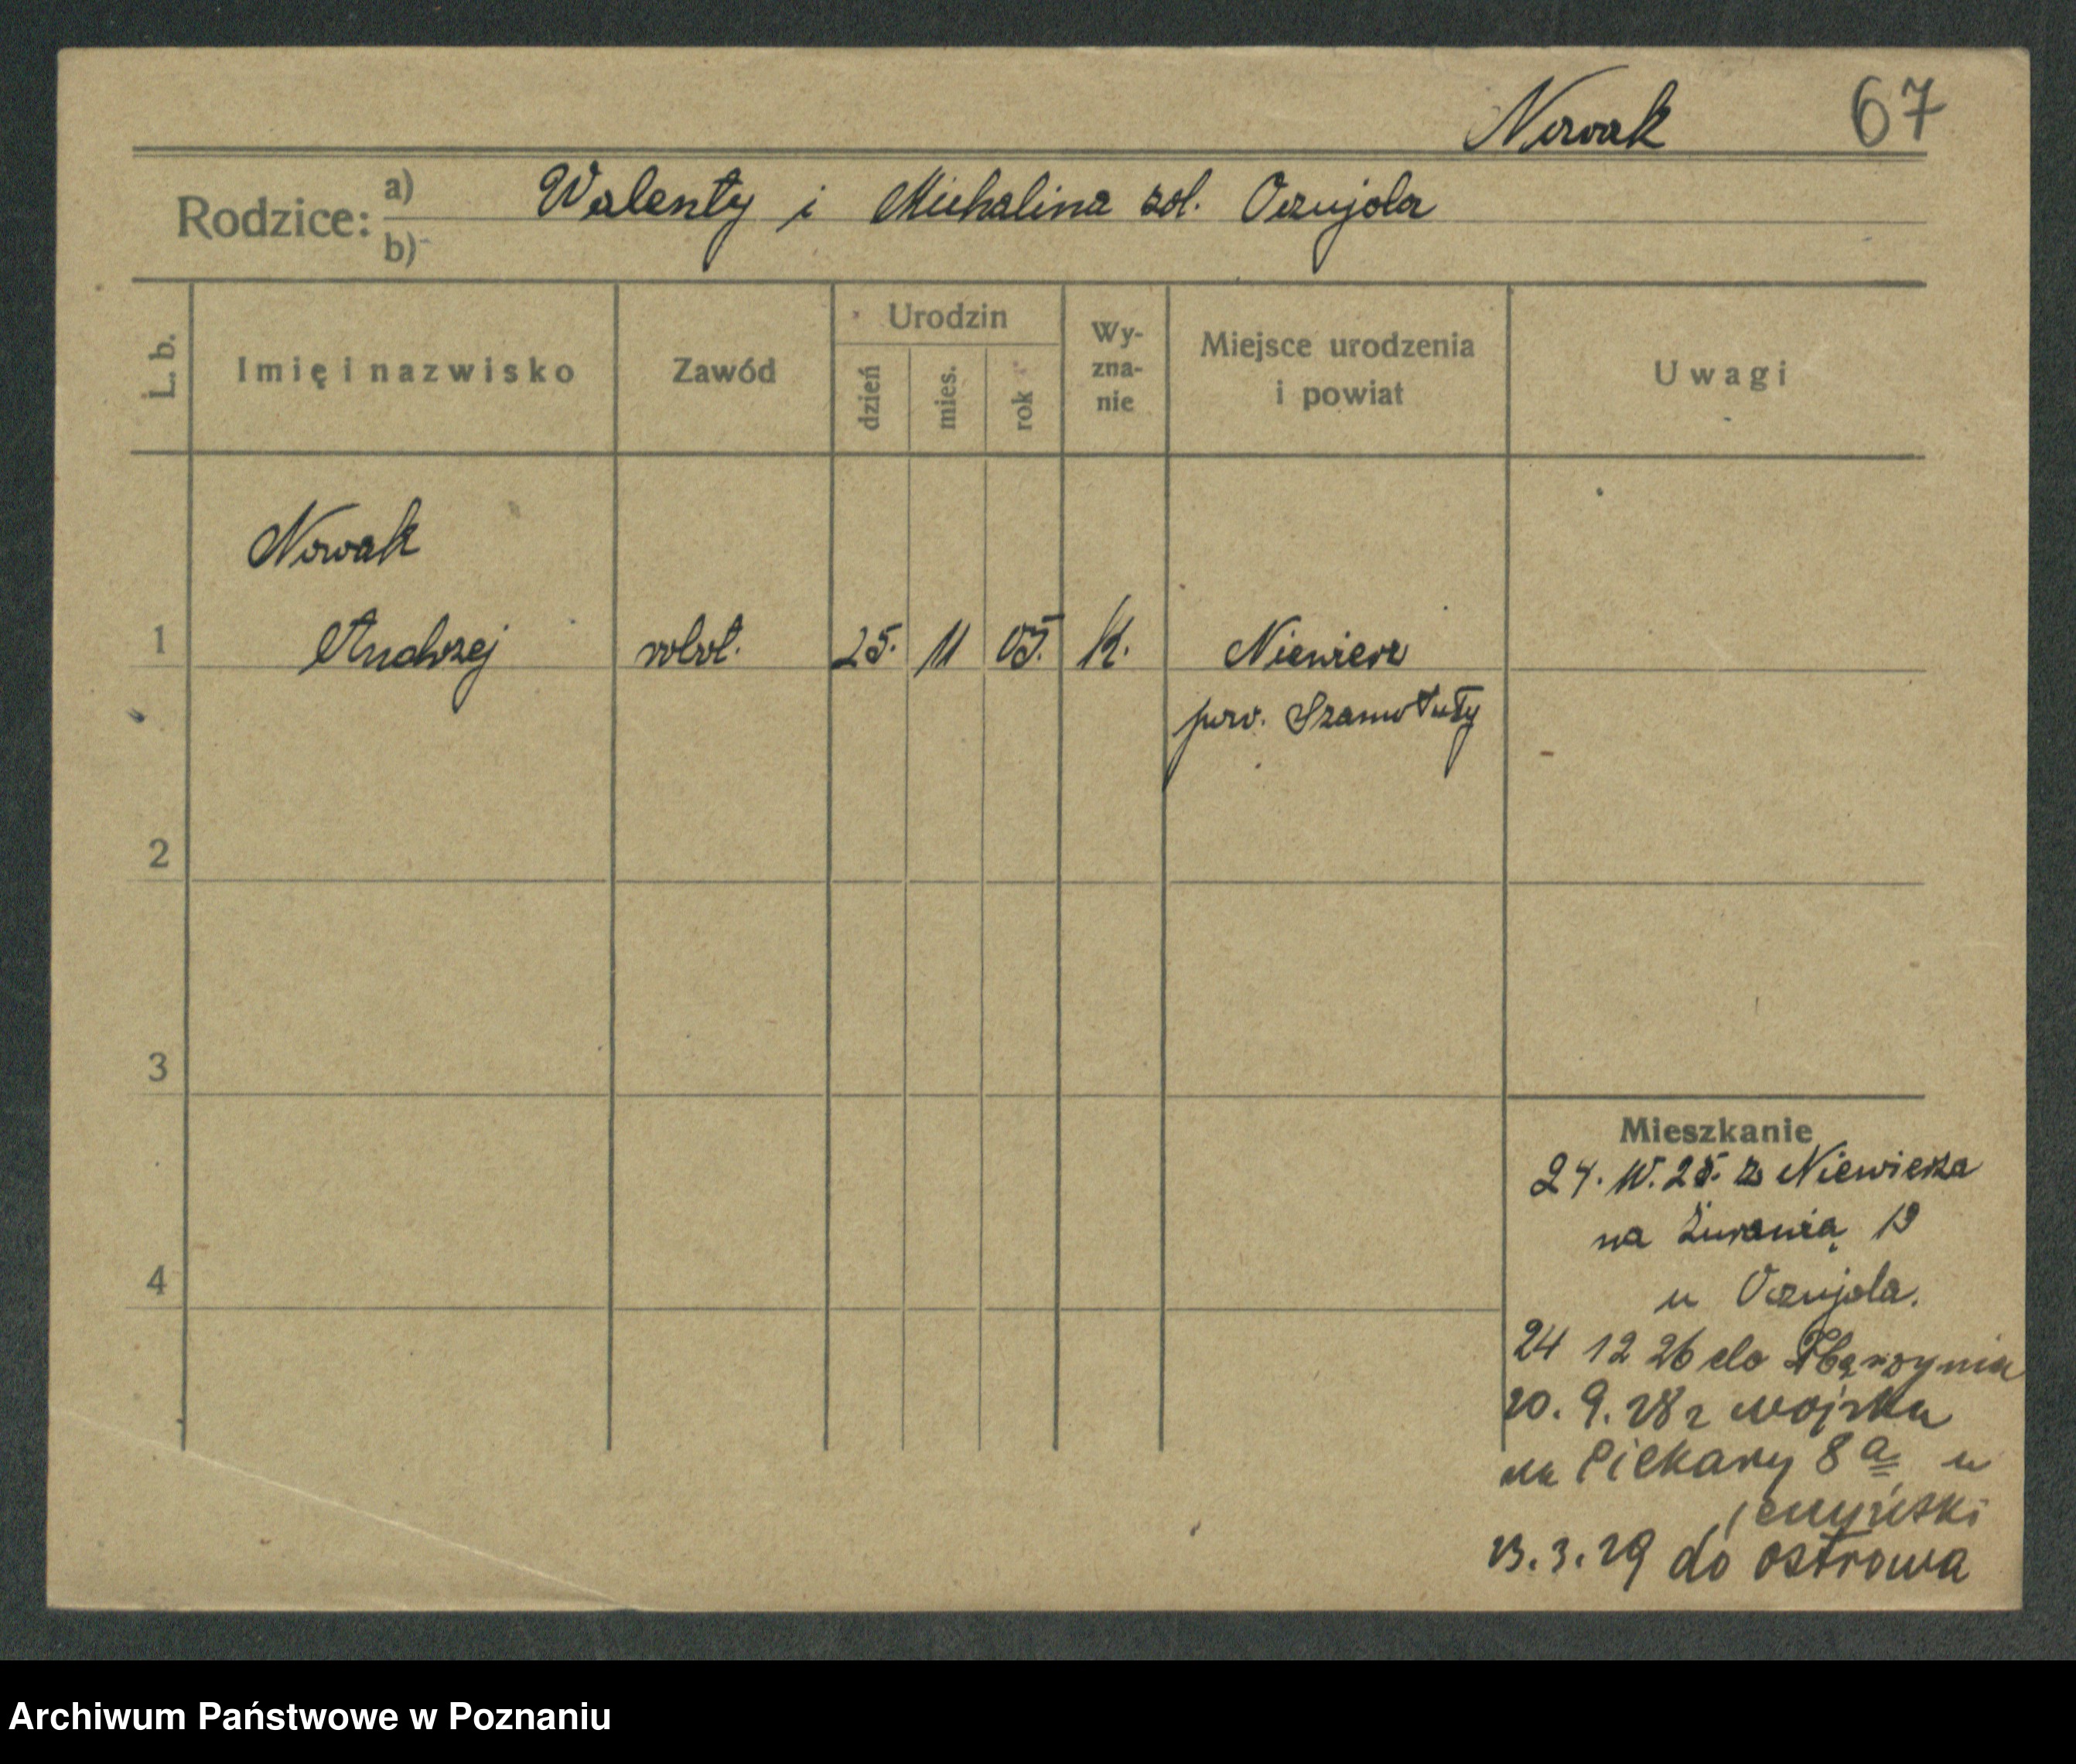 Nowak 67
Rodzice: a) Walenty i Michalina zd. Oczujola
b)
L. b.
Imię i nazwisko
Zawód
Urodzin
dzień
mies.
rok
Wy-
zna-
nie
Miejsce urodzenia
i powiat
Uwagi
Nowak
1 Andrzej robot. 25. 11 05. K. Niewierz
pow. Szamotuły
2
3
4
Mieszkanie
24. IV. 25. z Niewierza
na Żurawią 19
u Oczujola.
24 12 26 do
20. 9. 28 z wojska
na Piekary 8 a u
13. 3. 29 do Ostrowa
Archiwum Państwowe w Poznaniu